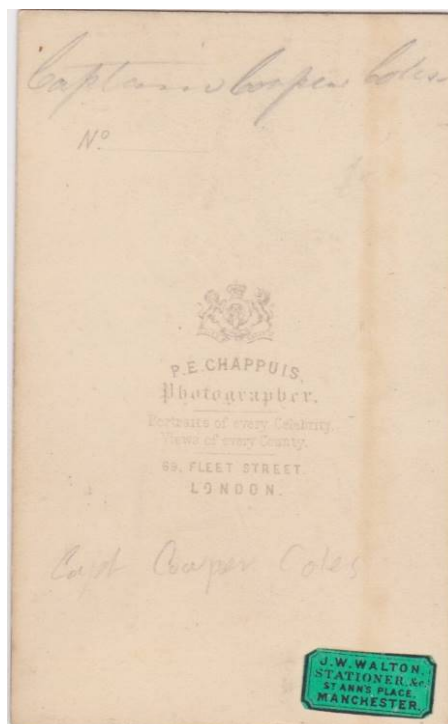 Captain Cowper Coles
Nº
P.E. CHAPPUIS,
Photographer.
Portraits of every Celebrity.
Views of every County.
69, FLEET STREET
LONDON.
Capt Cowper Coles
J. W. WALTON,
STATIONER, &c.
ST ANN'S PLACE,
MANCHESTER.